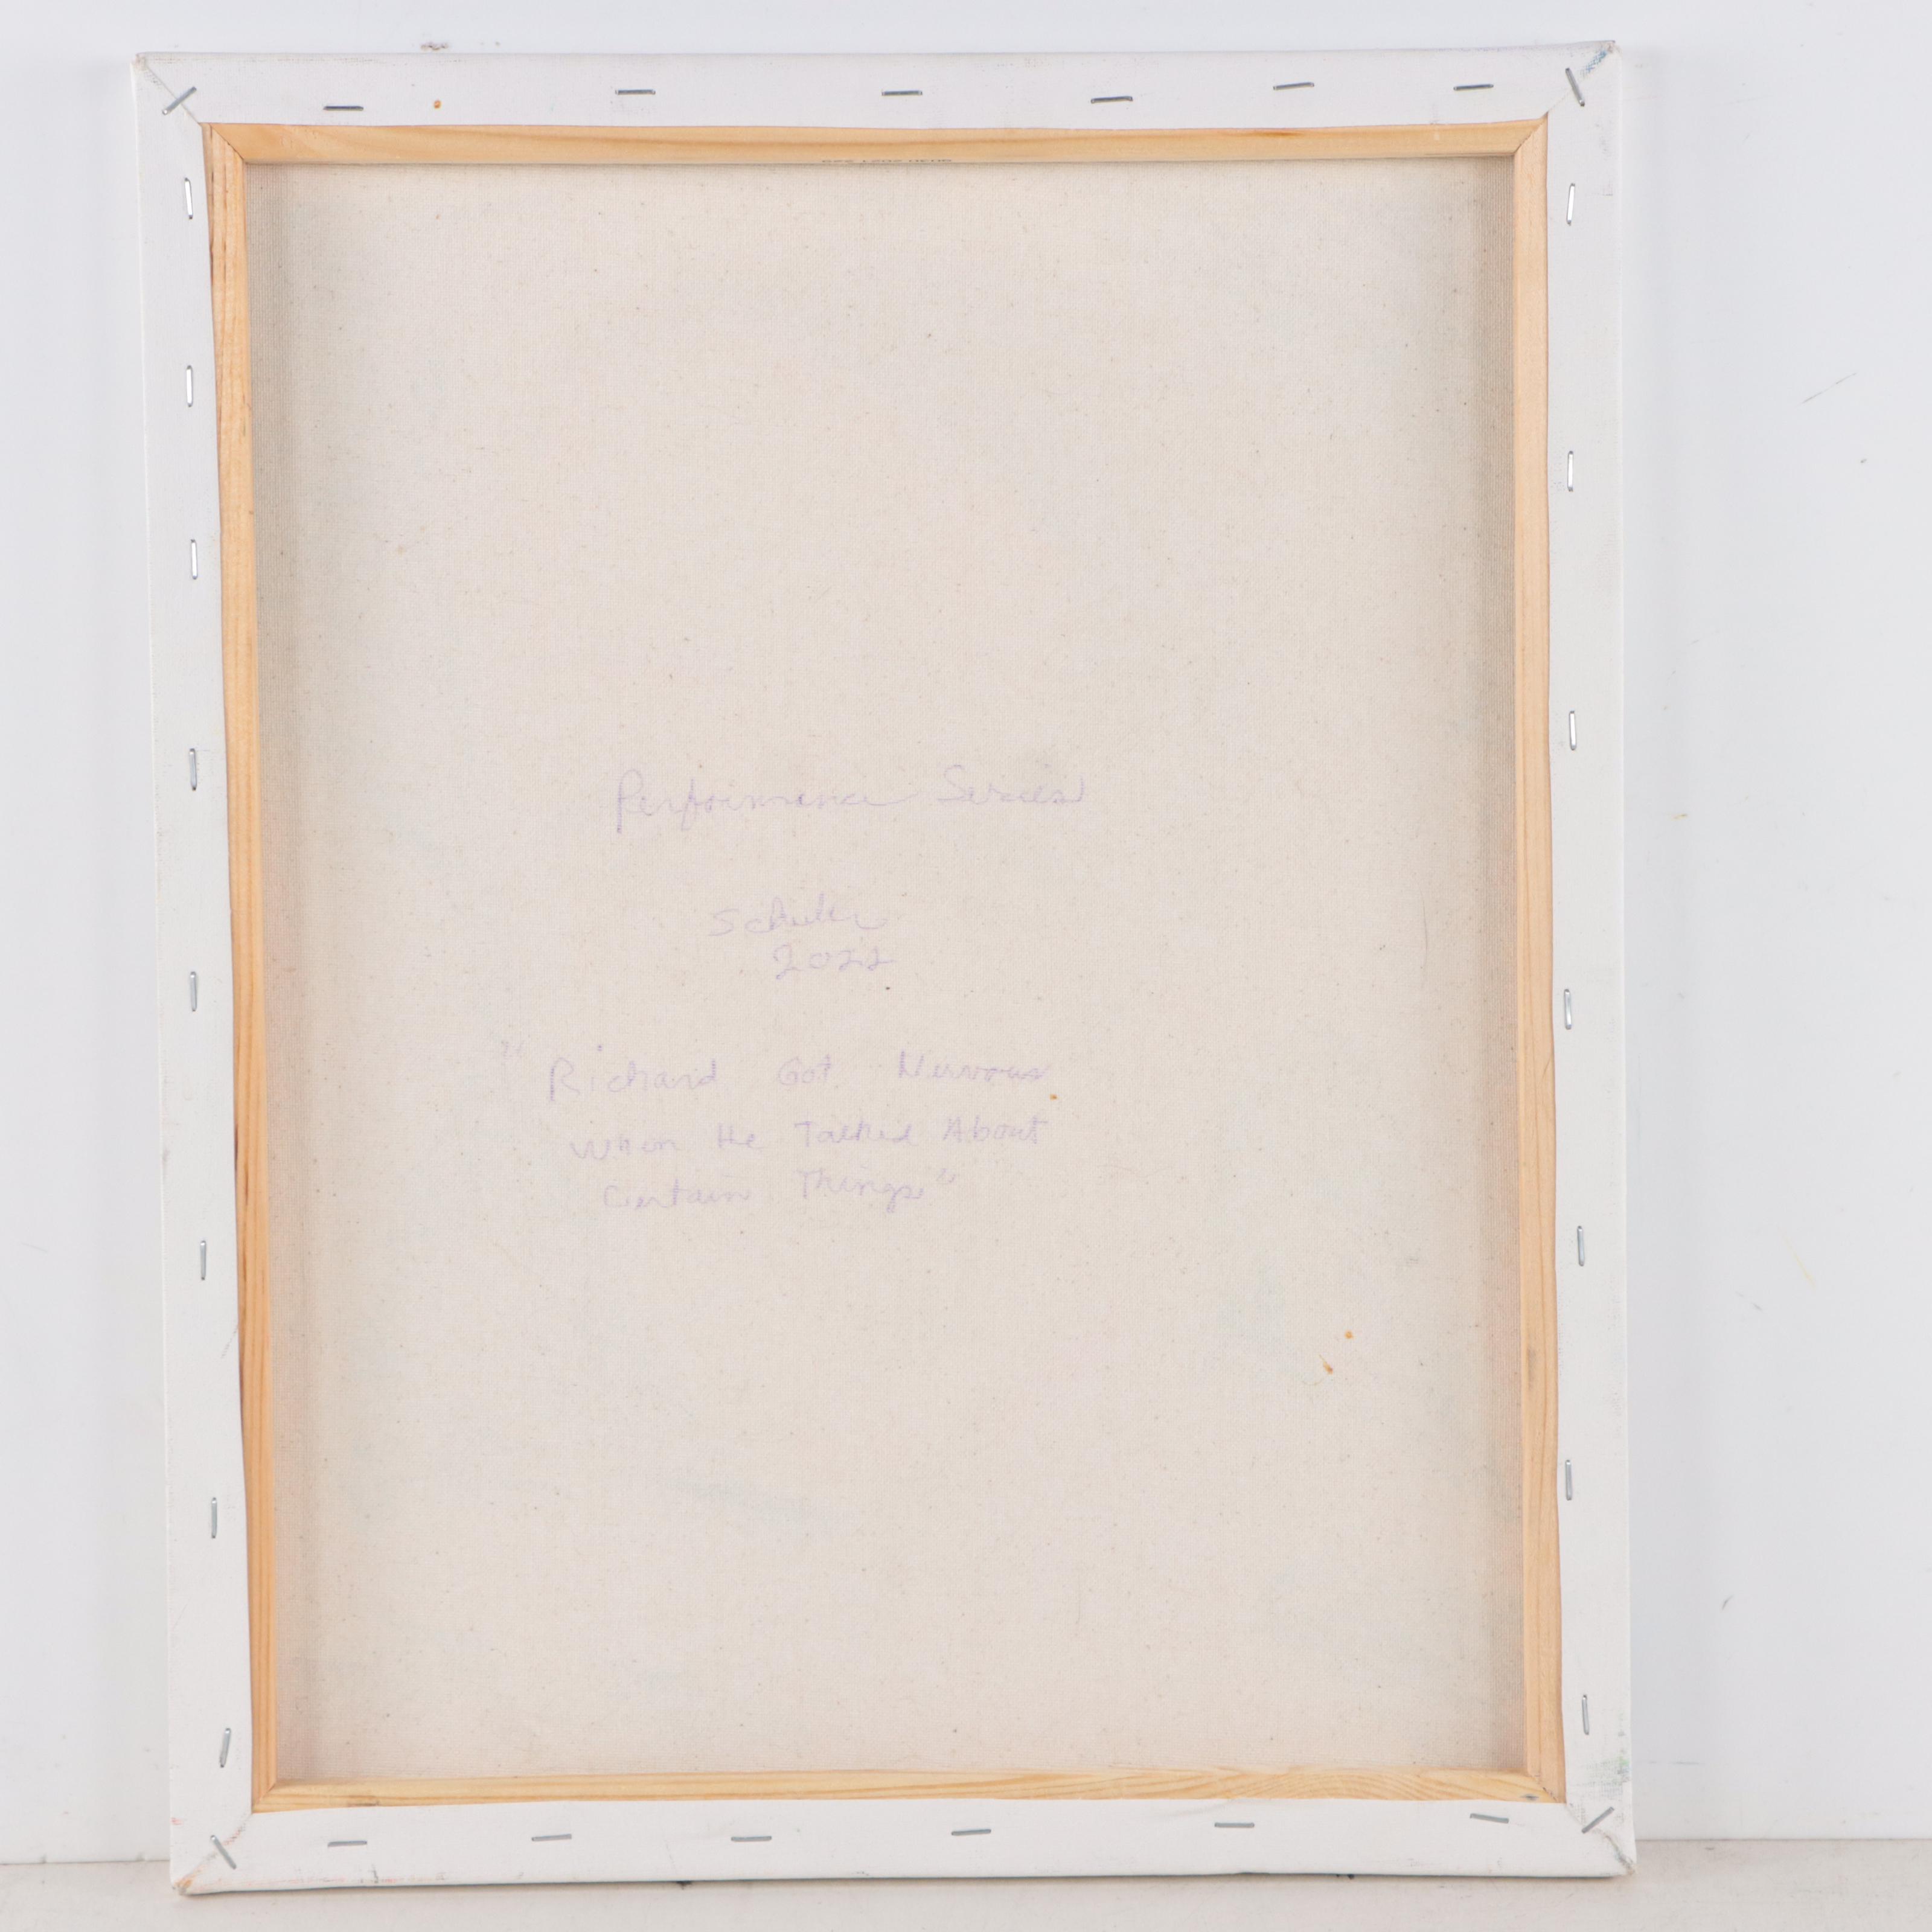 Performance Series
2022
"Richard Got Nervous
When He Talked About
Certain Things"